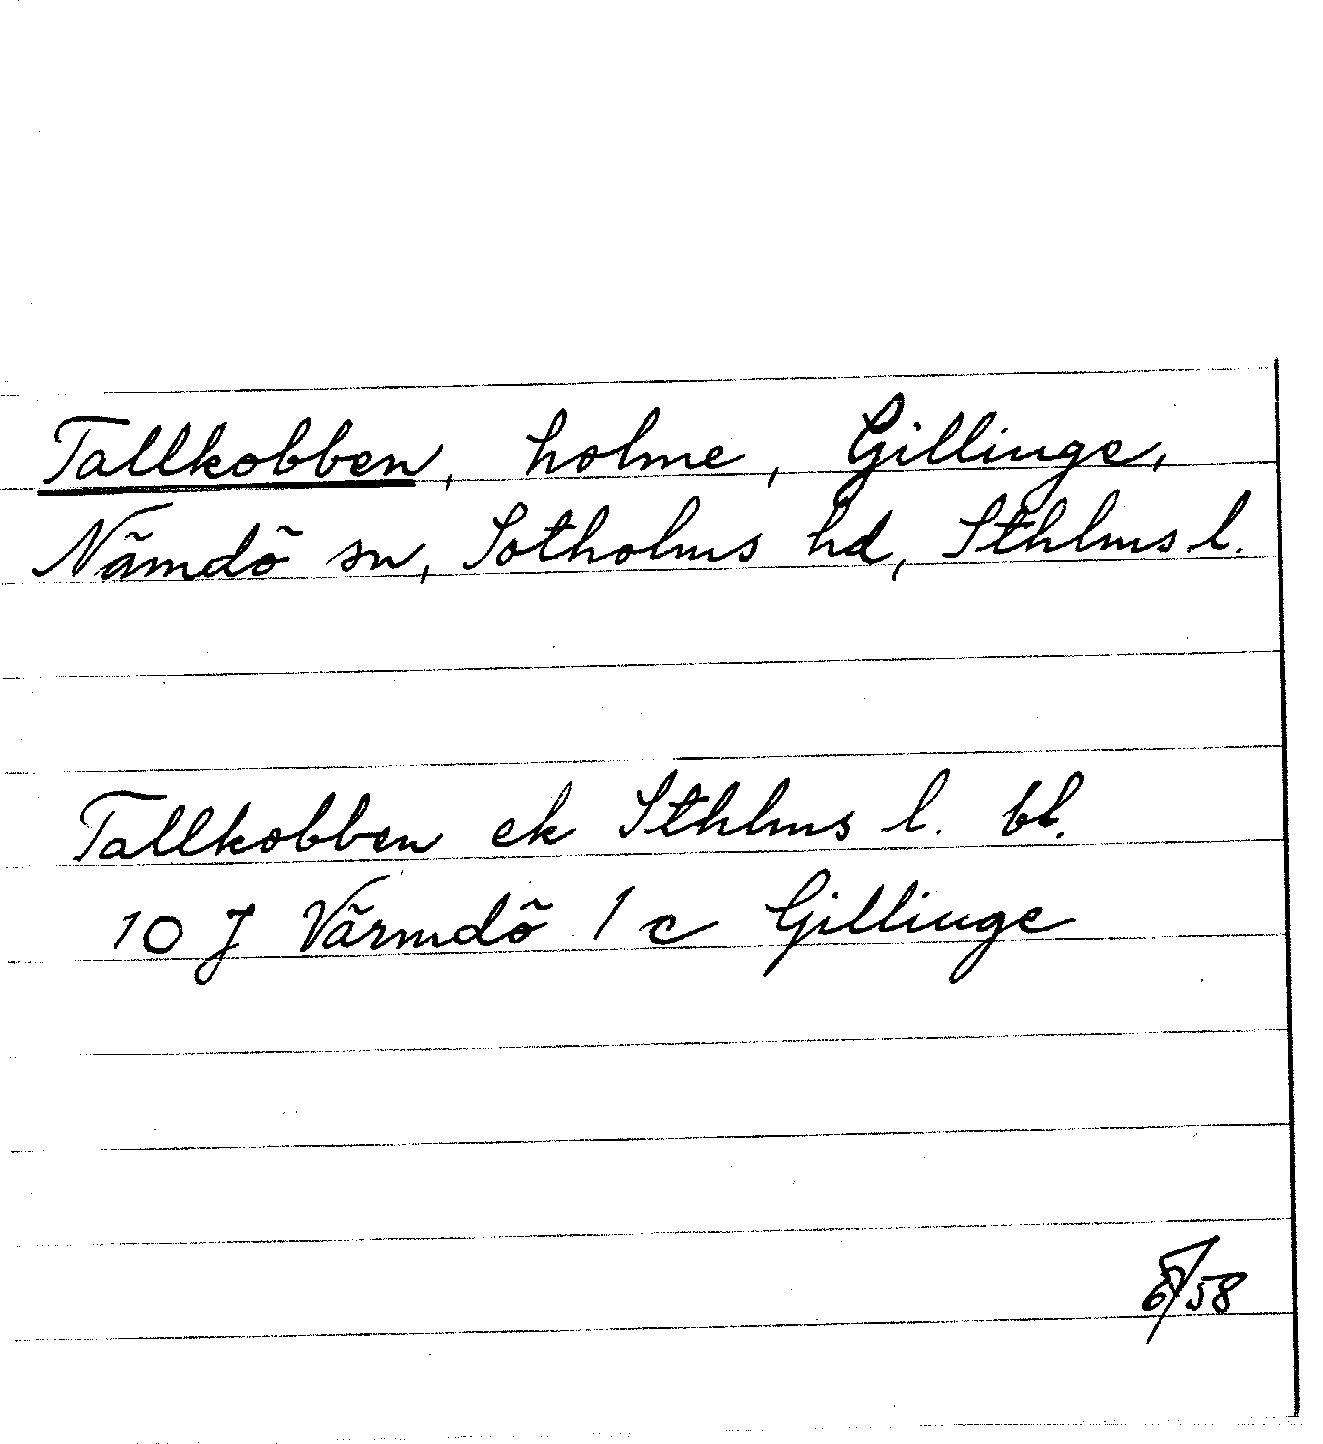 Tallkobben, holme, Gillinge,
Nämdö sn, Sotholms hd, Sthlms l.
Tallkobben ek Sthlms l. bl.
10 J Värmdö 1 c Gillinge
58